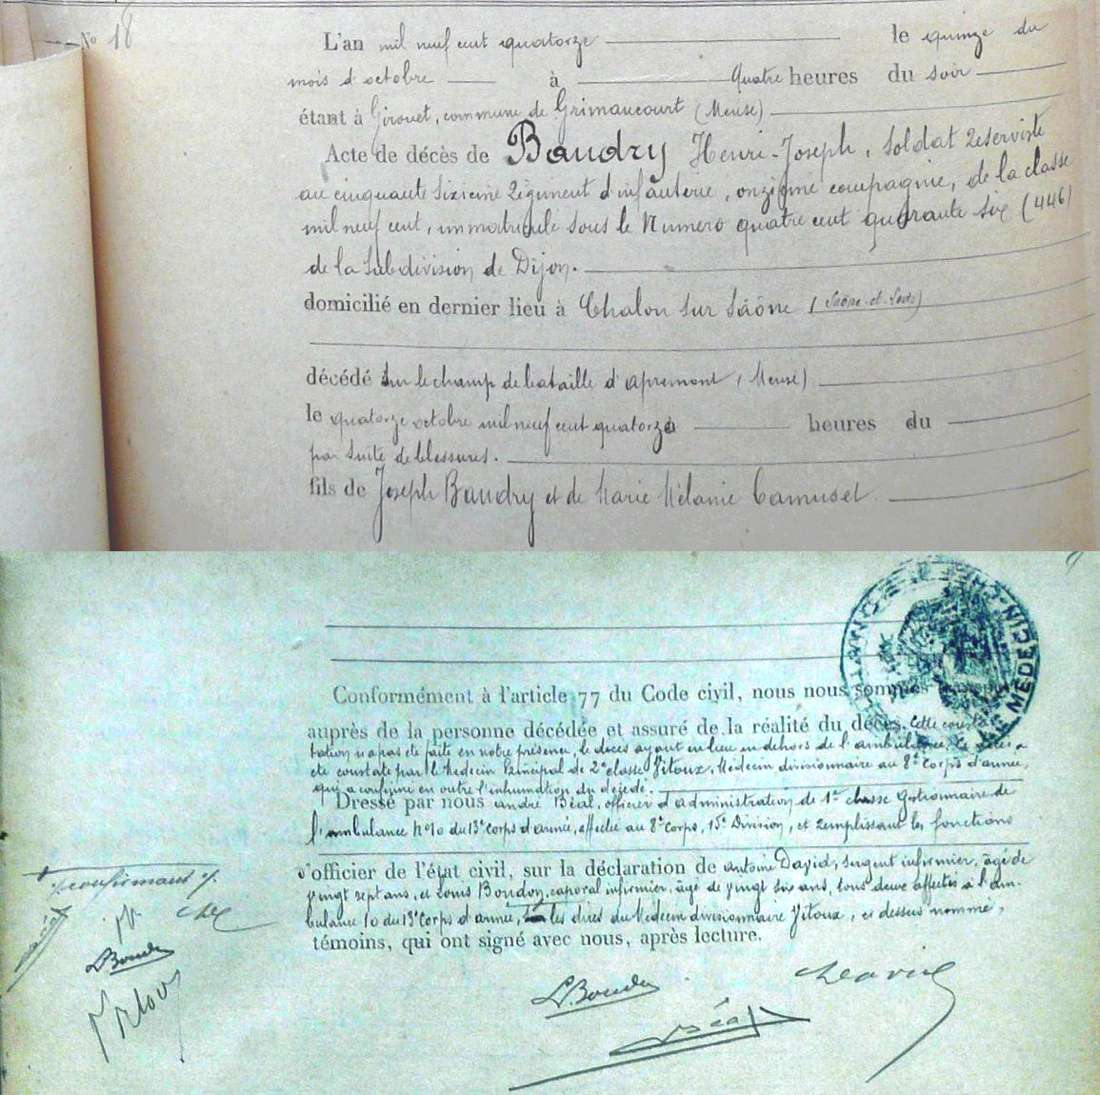 N° 18
L'an mil neuf cent quatorze le quinze du
mois d'octobre à quatre heures du soir
étant à Girouet, commune de Grimaucourt (Meuse)
Acte de décès de Baudry Henri-Joseph, soldat reserviste
au cinquante sixième régiment d'infanterie, onzième compagnie, de la classe
mil neuf cent, immatricule sous le Numero quatre cent quarante six (446)
de la subdivision de Dijon.
domicilié en dernier lieu à Chalon sur Saône (Saône-et-Loire)
décédé sur le champ de bataille d'apremont, (Meuse)
le quatorze octobre mil neuf cent quatorze à heures du
par suite de blessures.
fils de Joseph Baudry et de Marie Mélanie Camuset
MEDECIN
Conformément à l'article 77 du Code civil, nous nous sommes
auprès de la personne décédée et assuré de la réalité du décès. Cette consta
tation n'a pas été faite en notre présence, le décès ayant eu lieu en dehors de l'ambulance. Ce décès a
été constaté par le Medecin Principal de 2e classe Vitoux, Médecin divisionnaire au 8e Corps d'armée,
qui a confirmé en outre l'inhumation du décédé.
Dressé par nous andré Béal, officier d'administration de 1re classe Gestionnaire de
l'ambulance N°10 du 13e Corps d'armée, affectée au 8e Corps, 15e Division, et remplissant les fonctions
d'officier de l'état civil, sur la déclaration de antoine David, sergent infirmier, âgé de
vingt sept ans, et Louis Boudon, caporal infirmier, âgé de vingt six ans, tous deux affectés à l'am-
bulance 10 du 13e Corps d'armée, les dires du Médecin divisionnaire Vitoux, ci dessus nommé,
témoins, qui ont signé avec nous, après lecture.
confirmant
L. Boudon
Vitoux
L. Boudon
David
Béal